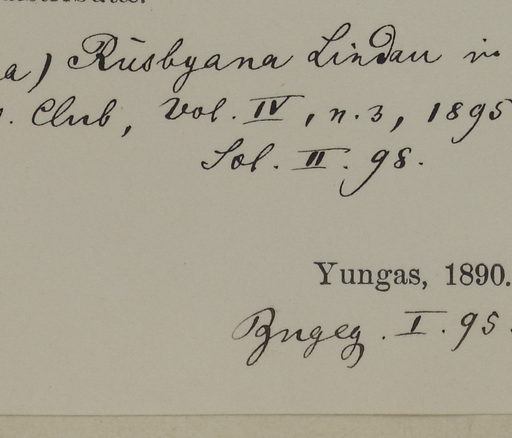 a) Rusbyana Lindau in
. Club, Vol. IV, n. 3, 1895
Sol. II. 98.
Yungas, 1890.
I. 95.